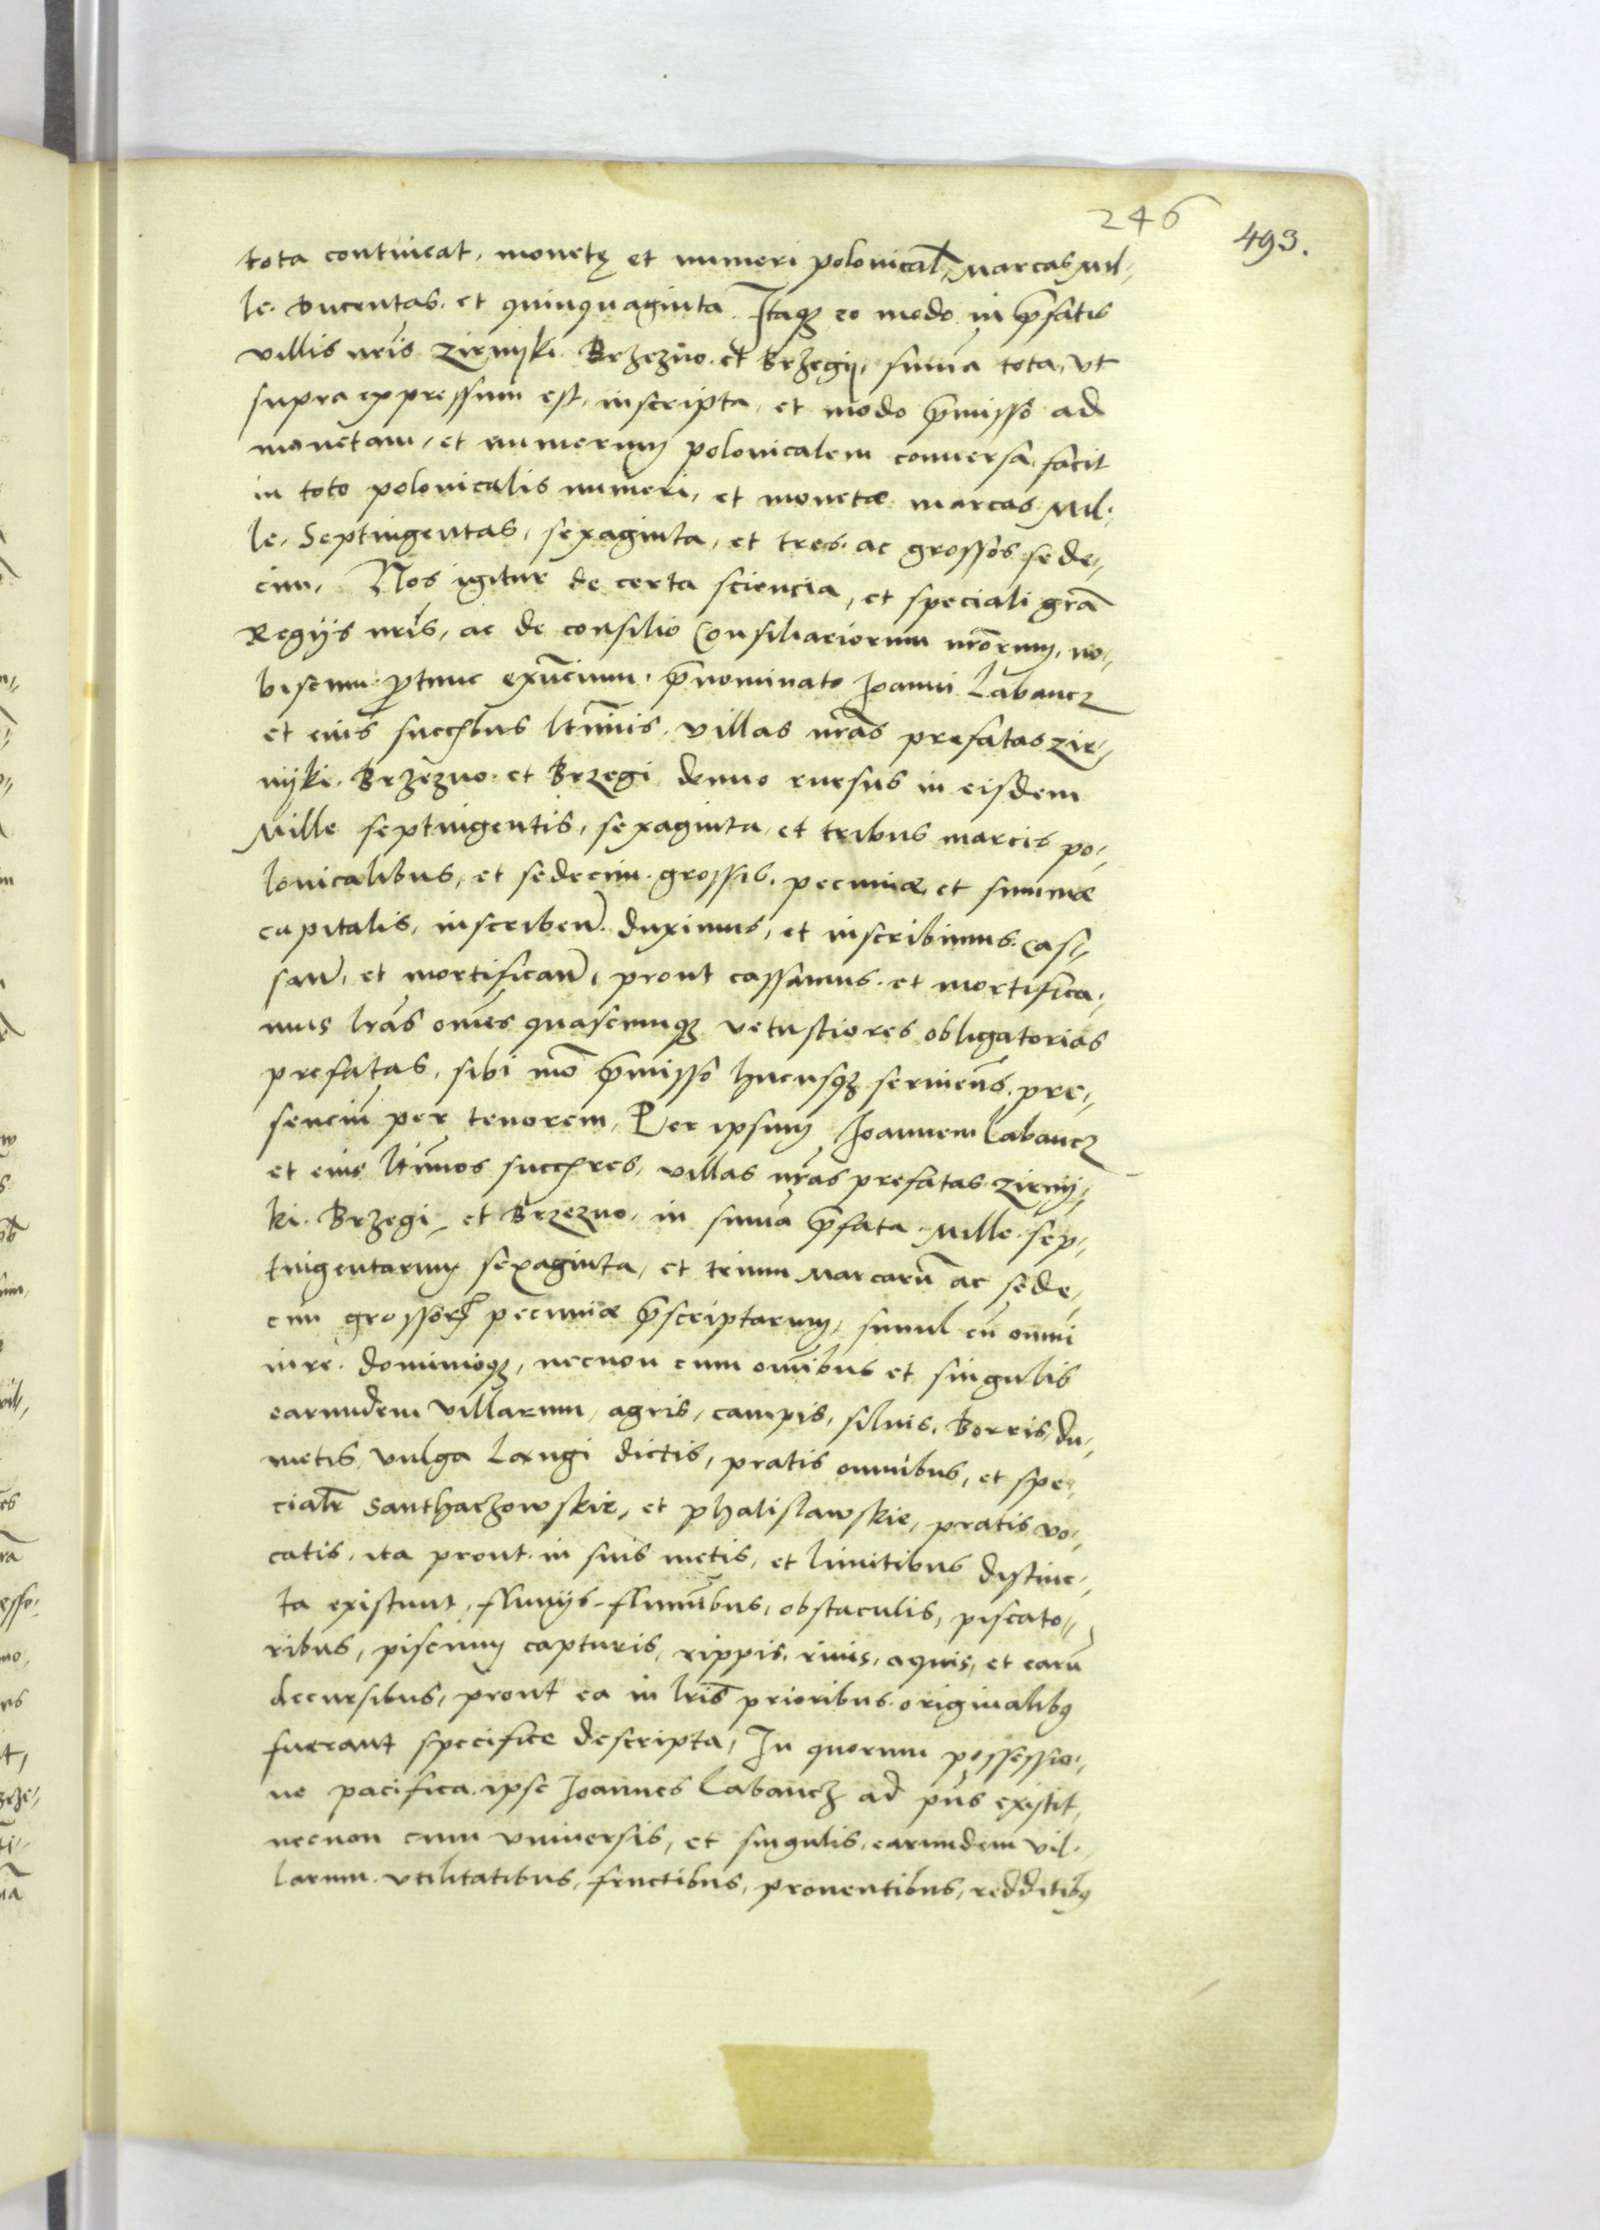 246
493.
tota contineat, monetę et numeri polonical̃, Marcas Mil-
le. Ducentas. et quinquaginta. Itaqȝ eo modo in p̃fatis
villis nr̃is Zirnijki. Brzezno. et Brzegij, sum̃a tota, vt
supra expressum est, inscripta, et modo p̃misso ad
monetam, et numerum polonicalem conuersa, facit
in toto polonicalis numeri, et monetæ marcas Mil-
le. Septingentas, sexaginta, et tres. ac grossos sede-
cim, Nos igitur de certa sciencia, et speciali gr̃a
Regijs nr̃is, ac de consilio Consiliariorum nr̃orum, no-
biscum p̱tunc exñcium, p̃nominato Joanni Labancz
et eius succ̃bus lt̃imis. villas nr̃as prefatas Zir-
nijki. Brzezno. et Brzegi denuo rursus in eisdem
Mille septingentis, sexaginta, et tribus marcis po-
lonicalibus, et sedecim. grossis. pecuniæ, et summæ
capitalis, inscriben̄. duximus, et inscribimus. Cas-
san̄, et mortifican̄, prout cassamus. et mortifica-
mus lr̃as om̃es quascumqȝ vetustiores obligatorias
prefatas, sibi mõ p̃misso hucusqȝ seruieñs. pre-
senciũ per tenorem, Per ipsum Joannem Labancz
et eius lt̃imos succ̃res, villas nr̃as prefatas Zirnij-
ki. Brzegi et Brzezno, in sum̃a p̃fata. Mille. sep-
tingentarum sexaginta, et trium Marcarũ ac sede-
cim grossorꝝ pecuniæ p̃scriptarum, simul cũ omni
iure. dominioqȝ, necnon cum om̃ibus et singulis
earundem villarum, agris, campis, siluis, Borris, du-
metis, vulga Laxngi dictis, pratis omnibus, et spe-
cial̃r Santhachowskie, et phalislawskie, pratis vo-
catis, ita prout in suis metis, et limitibus distinc-
ta existunt, fluuijs-flumĩbus, obstaculis, piscato-
ribus, piscium capturis, rippis, riuis, aquis, et earũ
decursibus, prout ea in lr̃is prioribus originalibꝰ
fuerant specifice descripta, In quorum possessio-
ne pacifica. ipse Joannes Labancz ad pñs existit,
necnon cum vniuersis, et singulis, earundem vil-
larum. vtilitatibus, fructibus, prouentibus, redditibꝰ